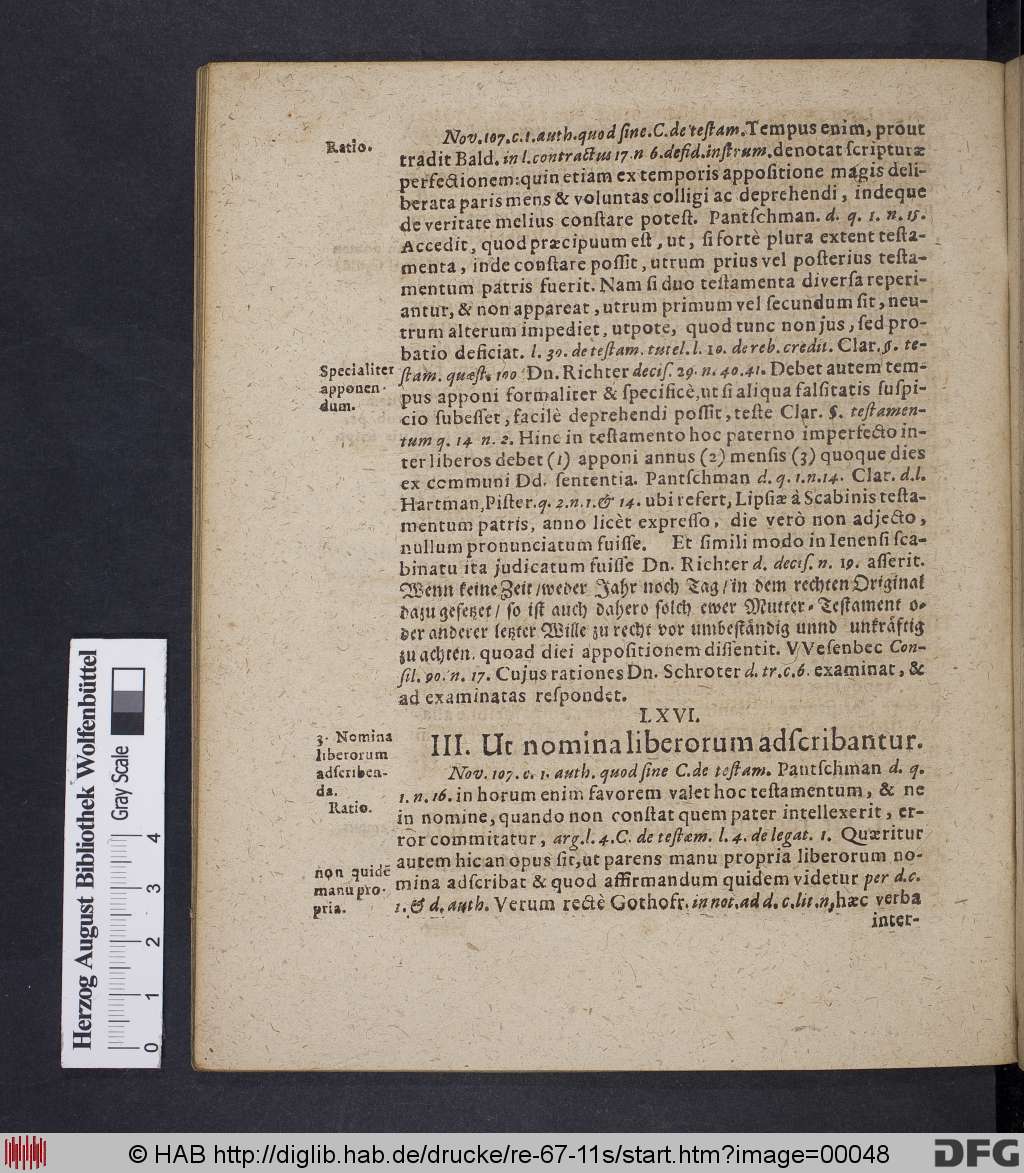 Nov. 107. c. 1. auth. quod sine. C. de testam. Tempus enim, prout
Ratio.
tradit Bald. in l. contractus 17. n 6. de fid. instrum. denotat scripturæ
perfectionem: quin etiam ex temporis appositione magis deli-
berata paris mens & voluntas colligi ac deprehendi, indeque
de veritate melius constare potest. Pantschman. d. q. 1. n. 15.
Accedit, quod præcipuum est, ut, si fortè plura extent testa-
menta, inde constare possit, utrum prius vel posterius testa-
mentum patris fuerit. Nam si duo testamenta diversa reperi-
antur, & non appareat, utrum primum vel secundum sit, neu-
trum alterum impediet, utpote, quod tunc non jus, sed pro-
batio deficiat. l. 30. de testam. tutel. l. 10. de reb. credit. Clar. §. te-
Specialiter
apponen-
dum.
stam. quæst. 100 Dn. Richter decis. 29. n. 40. 41. Debet autem tem-
pus apponi formaliter & specificè, ut si aliqua falsitatis suspi-
cio subesset, facilè deprehendi possit, teste Clar. §. testamen-
tum q. 14 n. 2. Hinc in testamento hoc paterno imperfecto in-
ter liberos debet (1) apponi annus (2) mensis (3) quoque dies
ex communi Dd. sententia. Pantschman d. q. 1. n. 14. Clar. d. l.
Hartman, Pister. q. 2. n. 1. & 14. ubi refert, Lipsiæ à Scabinis testa-
mentum patris, anno licèt expresso, die verò non adjecto,
nullum pronunciatum fuisse. Et simili modo in Ienensi sca-
binatu ita judicatum fuisse Dn. Richter d. decis. n. 19. asserit.
Wenn keine Zeit / weder Jahr noch Tag / in dem rechten Original
dazu gesetzet / so ist auch dahero solch ewer Mutter-Testament o-
der anderer letzter Wille zu recht vor umbeständig unnd unkräftig
zu achten. quoad diei appositionem dissentit. VVesenbec Con-
sil. 90. n. 17. Cujus rationes Dn. Schroter d. tr. c. 6. examinat, &
ad examinatas respondet.
LXVI.
3. Nomina
liberorum
adscriben-
da.
III. Ut nomina liberorum adscribantur.
Nov. 107. c. 1. auth. quod sine C. de testam. Pantschman d. q.
Ratio.
1. n. 16. in horum enim favorem valet hoc testamentum, & ne
in nomine, quando non constat quem pater intellexerit, er-
ror commitatur, arg. l. 4. C. de testam. l. 4. de legat. 1. Quæritur
non quidē
manu pro-
pria.
autem hic an opus sit, ut parens manu propria liberorum no-
mina adscribat & quod affirmandum quidem videtur per d. c.
1. & d. auth. Verum rectè Gothofr. in not. ad d. c. lit. n, hæc verba
inter-
Herzog August Bibliothek Wolfenbüttel
Gray Scale
0 1 2 3 4
© HAB http://diglib.hab.de/drucke/re-67-11s/start.htm?image=00048
DFG